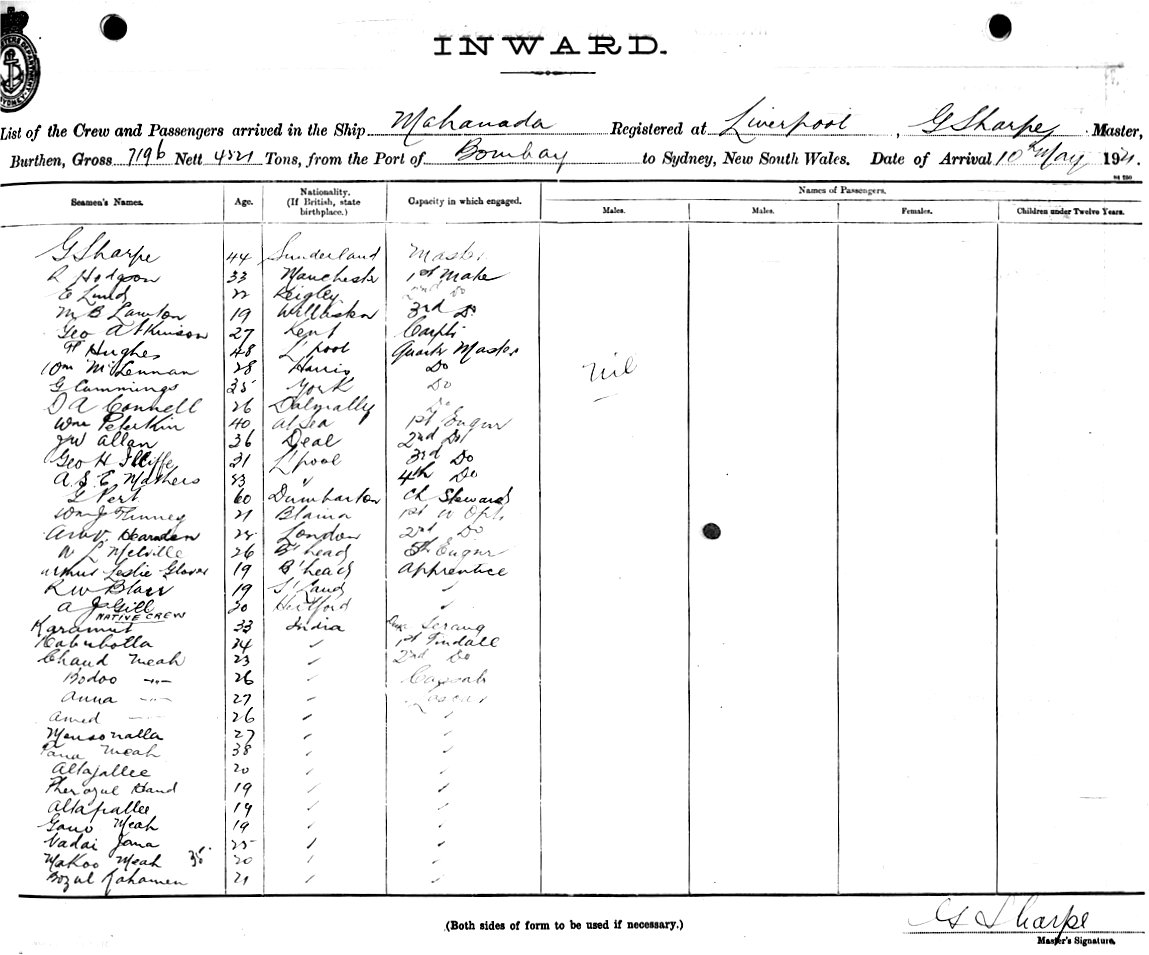 INWARD.
List of the Crew and Passengers arrived in the Ship Mahanada Registered at Liverpool, G Sharpe Master,
Burthen, Gross 7196 Nett 4521 Tons, from the Port of Bombay to Sydney, New South Wales. Date of Arrival 10th May 1921.
Names of Passengers.
Seamen's Names. Age. Nationality. (If British, state birthplace.) Capacity in which engaged. Males. Males. Females. Children under Twelve Years.
G Sharpe 44 Sunderland Master
R Hodgson 33 Manchester 1st Mate
E Lund 22 Keigley 2nd Do
M B Lawton 19 3rd Do
Geo Atkinson 27 Kent Carptr
Hughes 48 L'pool Quarter Master
Wm McLennan 28 Harris Do
nil
G Cummings 35 York Do
D A Connell 26 Dalmally Do
Wm Peterkin 40 at Sea 1st Engnr
JW Allan 36 Deal 2nd Do
Geo H Iliffe 31 L'pool 3rd Do
A. S. E. Mathers 23 " 4th Do
G Pert 60 Dumbarton Ch Steward
Wm J Finney 21 Blaina 1st W Optr
Hearnden 28 London 2nd Do
W L Melville 26 B'head 5th Engnr
Arthur Leslie Glover 19 B'head Apprentice
R W Blair 19 S'land "
A J Gill 20 Hertford "
NATIVE CREW
Karamut 33 India Serang
24 " 1st Tindall
Chand Meah 23 " 2nd Do
Bodoo -"- 26 " Cassab
Anna -"- 27 " Lascar
Amed -"- 26 " "
27 " "
Meah 38 " "
Altajallee 20 " "
19 " "
19 " "
Meah 19 " "
Vadai Jana 25 " "
Makoo Meah 35 20 " "
Bozul Rahamen 21 " "
(Both sides of form to be used if necessary.)
G Sharpe
Master's Signature.